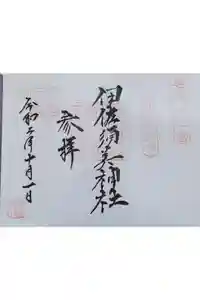 伊佐須美神社
参拝
令和二年十月一日